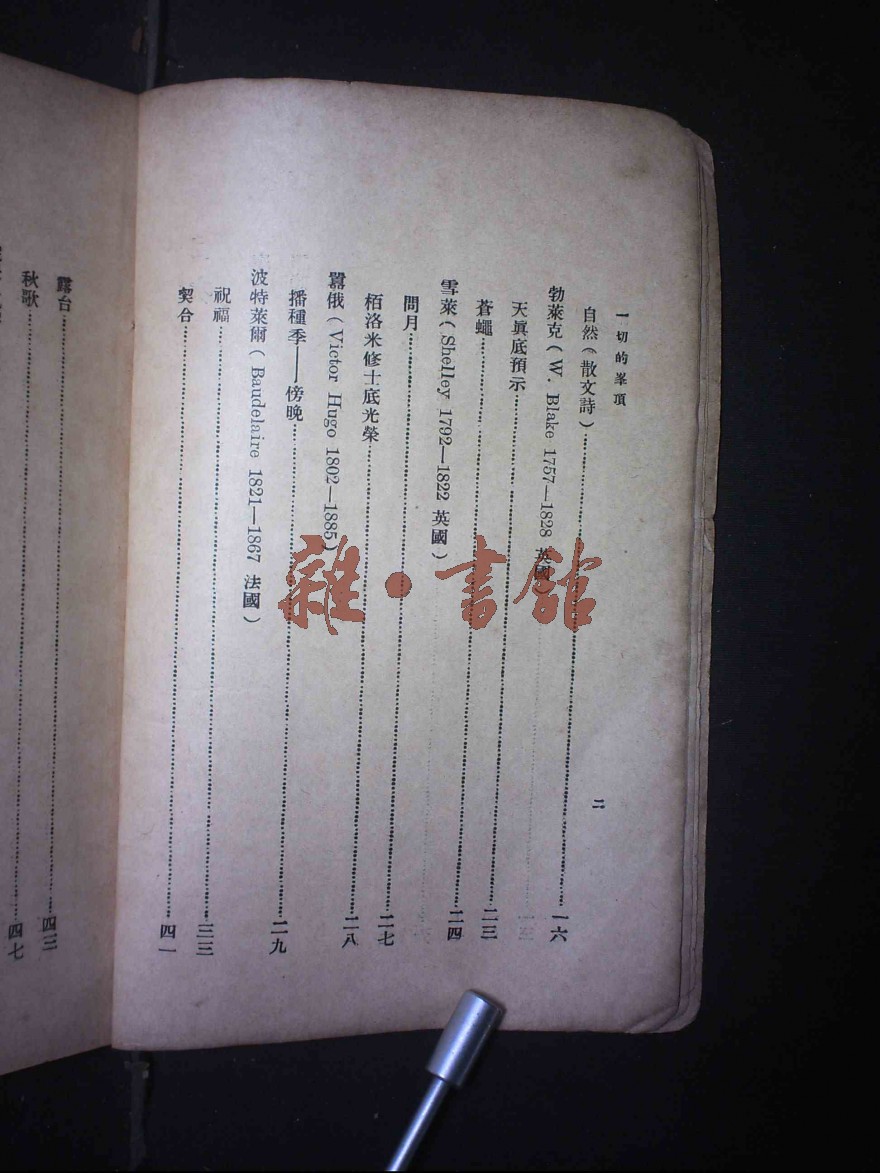 一切的峯頂
二
自然（散文詩）……一六
勃萊克（W. Blake 1757—1828 英國）
天眞底預示……二三
蒼蠅……二四
雪萊（Shelley 1792—1822 英國）
問月……二七
栢洛米修士底光榮……二八
囂俄（Victor Hugo 1802—1885）
播種季——傍晚……二九
波特萊爾（Baudelaire 1821—1867 法國）
祝福……三三
契合……四一
露台……四三
秋歌……四七
雜·書館